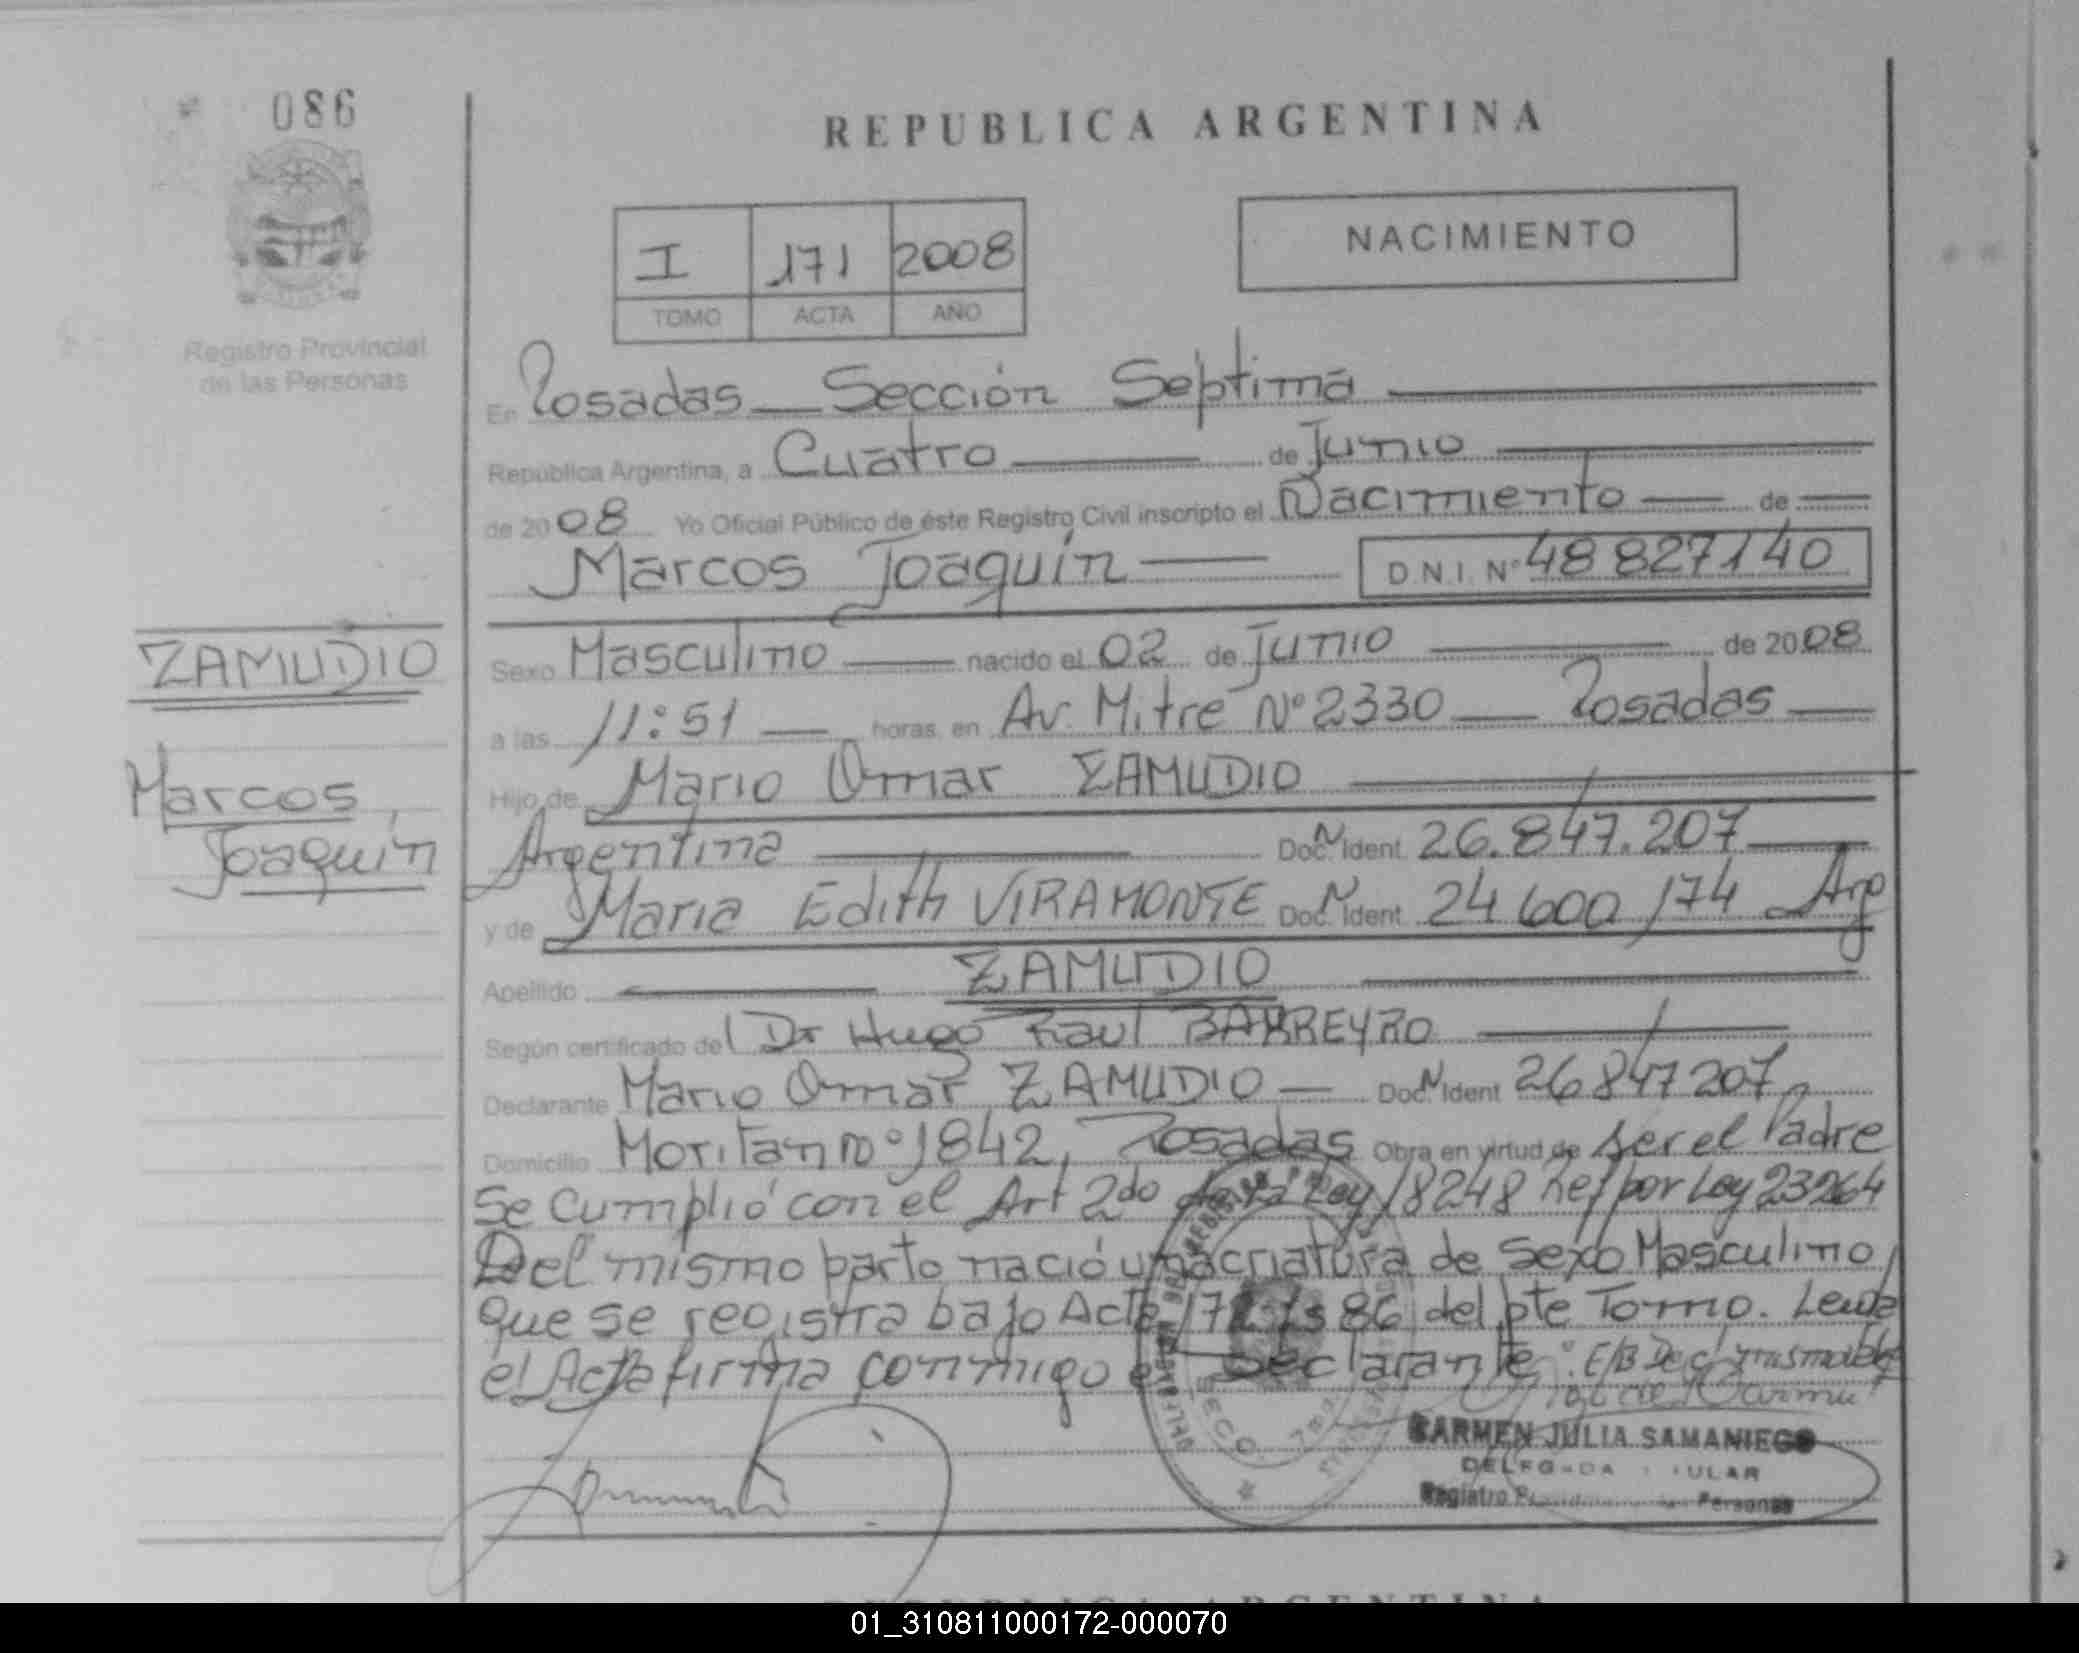 086
REPUBLICA ARGENTINA
I 171 2008
TOMO ACTA AÑO
NACIMIENTO
Registro Provincial
de las Personas
En Posadas Sección Septima
República Argentina, a Cuatro de Junio
de 2008 Yo Oficial Público de éste Registro Civil inscripto el Nacimiento de
Marcos Joaquín D.N.I. Nº 48 827140
ZAMUDIO
Marcos
Joaquín
Sexo Masculino nacido el 02 de Junio de 2008
a las 11:51 horas, en Av. Mitre Nº 2330 Posadas
Hijo de Mario Omar ZAMUDIO
Argentina Doc. N Ident 26.847.207
y de Maria Edith VIRAMONTE Doc. N Ident 24 600 174 Arg
Apellido ZAMUDIO
Según certificado del Dr Hugo Raul BARREYRO
Declarante Mario Omar ZAMUDIO Doc. N Ident 26 847 207
Domicilio Moritan nº 1842, Posadas Obra en virtud de ser el Padre
Se Cumplió con el Art 2do de la Ley 18248 Ref por Ley 23264
Del mismo parto nació una criatura de Sexo Masculino
que se registra bajo Acta 86 del pte Tomo. Leida
el Acta firma conmigo el Declarante
CARMEN JULIA SAMANIEGO
Registro Personas
REPUBLICA ARGENTINA
01_310811000172-000070